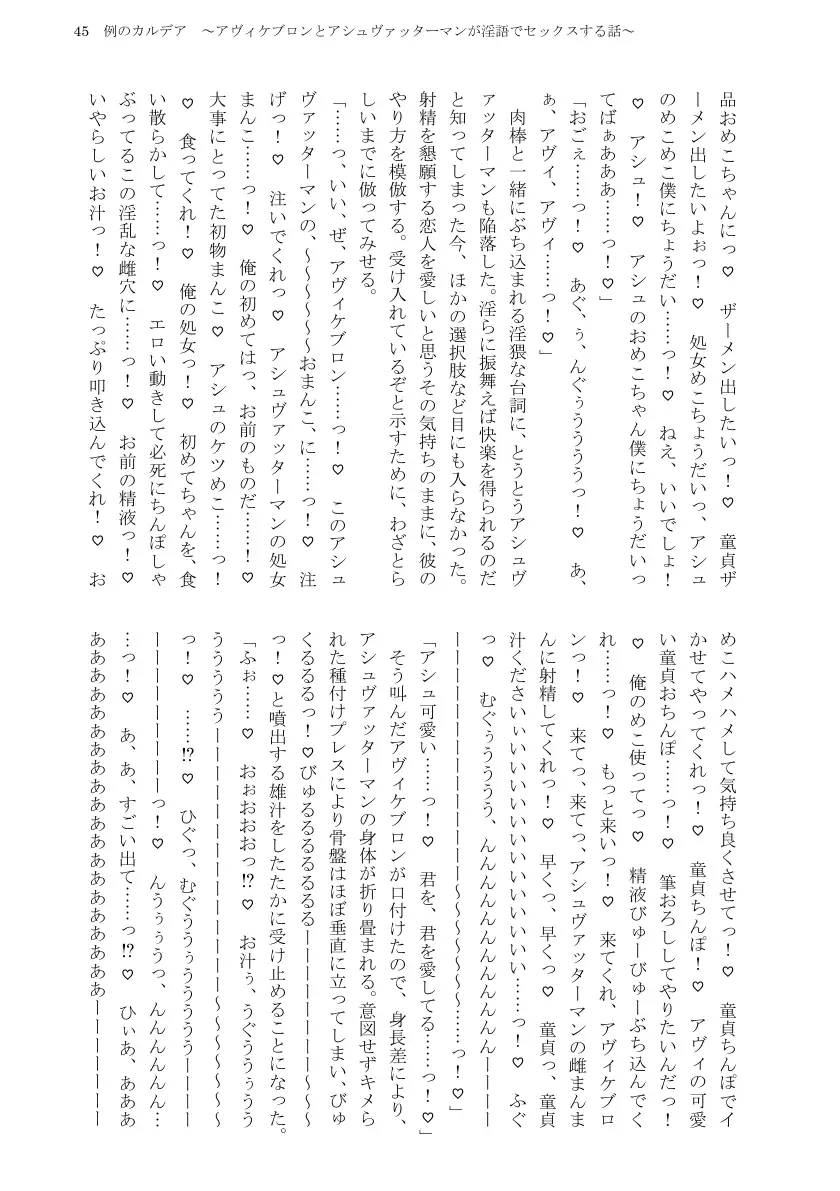 45　例のカルデア　～アヴィケブロンとアシュヴァッターマンが淫語でセックスする話～
品おめこちゃんにっ♡　ザーメン出したいっ！♡　童貞ザ
ーメン出したいよぉっ！♡　処女めこちょうだいっ、アシュ
のめこめこ僕にちょうだい……っ！♡　ねえ、いいでしょ！
♡　アシュ！♡　アシュのおめこちゃん僕にちょうだいっ
てばぁあああ……っ！♡」
「おごぇ……っ！♡　あぐ、ぅ、んぐぅうううっ！♡　あ、
ぁ、アヴィ、アヴィ……っ！♡」
　肉棒と一緒にぶち込まれる淫猥な台詞に、とうとうアシュヴ
ァッターマンも陥落した。淫らに振舞えば快楽を得られるのだ
と知ってしまった今、ほかの選択肢など目にも入らなかった。
射精を懇願する恋人を愛しいと思うその気持ちのままに、彼の
やり方を模倣する。受け入れているぞと示すために、わざとら
しいまでに倣ってみせる。
「……っ、いい、ぜ、アヴィケブロン……っ！♡　このアシュ
ヴァッターマンの、～～～～～～おまんこ、に……っ！♡　注
げっ！♡　注いでくれっ♡　アシュヴァッターマンの処女
まんこ……っ！♡　俺の初めてはっ、お前のものだ……！♡
大事にとってた初物まんこ♡　アシュのケツめこ……っ！
♡　食ってくれ！♡　俺の処女っ！♡　初めてちゃんを、食
い散らかして……っ！♡　エロい動きして必死にちんぽしゃ
ぶってるこの淫乱な雌穴に……っ！♡　お前の精液っ！♡
いやらしいお汁っ！♡　たっぷり叩き込んでくれ！♡　お
めこハメハメして気持ち良くさせてっ！♡　童貞ちんぽでイ
かせてやってくれっ！♡　童貞ちんぽ！♡　アヴィの可愛
い童貞おちんぽ……っ！♡　筆おろししてやりたいんだっ！
♡　俺のめこ使ってっ♡　精液びゅーびゅーぶち込んでく
れ……っ！♡　もっと来いっ！♡　来てくれ、アヴィケブロ
ンっ！♡　来てっ、来てっ、アシュヴァッターマンの雌まんま
んに射精してくれっ！♡　早くっ、早くっ♡　童貞っ、童貞
汁くださいぃいいいいいいいいいいいい……っ！♡　ふぐ
っ♡　むぐぅうううう、んんんんんんんんんんんんーーーー
ーーーーーーーーーーーーー～～～～～～……っ！♡」
「アシュ可愛い……っ！♡　君を、君を愛してる……っ！♡」
　そう叫んだアヴィケブロンが口付けたので、身長差により、
アシュヴァッターマンの身体が折り畳まれる。意図せずキメら
れた種付けプレスにより骨盤はほぼ垂直に立ってしまい、びゅ
くるるるっ！♡びゅるるるるるるるーーーーーーーー～～～
っ！♡と噴出する雄汁をしたたかに受け止めることになった。
「ふぉ……♡　おぉおおおっ⁉♡　お汁ぅ、うぐううぅうう
うううううーーーーーーーーーーーーーーー～～～～～～～
っ！♡　……⁉♡　ひぐっ、むぐううぅうううううーーーー
ーーーーーーーーっ！♡　んうぅぅうっ、んんんんんん…
…っ！♡　あ、あ、すごい出て……っ⁉♡　ひぃあ、あああ
ああああああああああああああああああああーーーーーーー